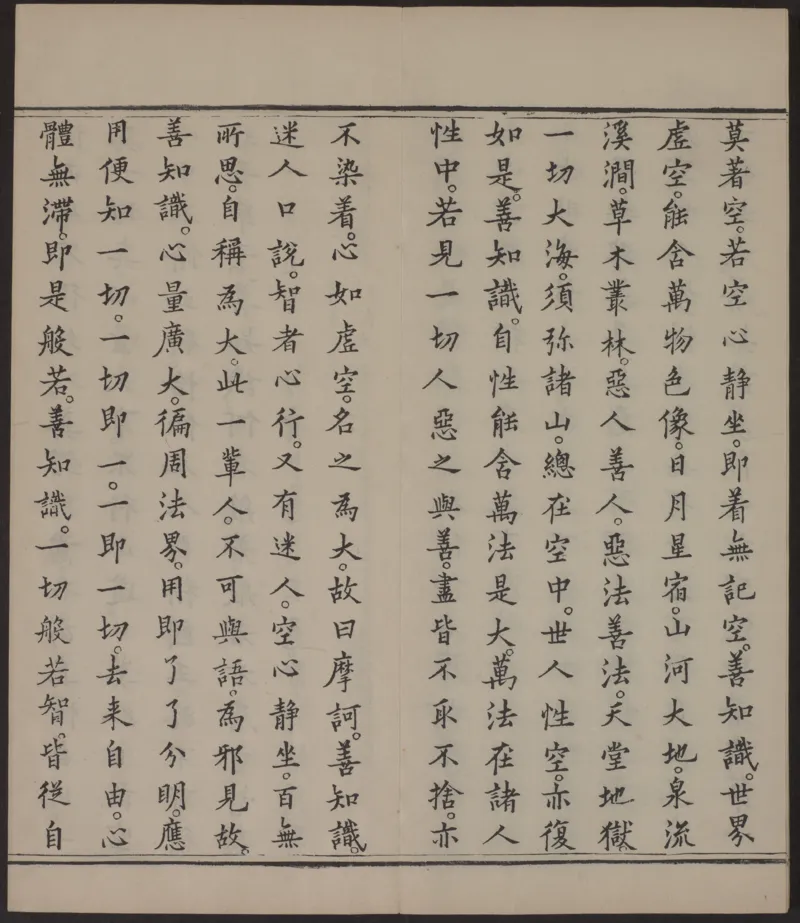 莫著空。若空心靜坐。即着無記空。善知識。世界
虛空。能含萬物色像。日月星宿。山河大地。泉流
溪澗。草木叢林。惡人善人。惡法善法。天堂地獄。
一切大海。須弥諸山。總在空中。世人性空。亦復
如是。善知識。自性能含萬法是大。萬法在諸人
性中。若見一切人惡之與善。盡皆不取不捨。亦
不染着。心如虛空。名之為大。故曰摩訶。善知識。
迷人口說。智者心行。又有迷人。空心靜坐。百無
所思。自稱為大。此一輩人。不可與語。為邪見故。
善知識。心量廣大。徧周法界。用即了了分明。應
用便知一切。一切即一。一即一切。去来自由。心
體無滯。即是般若。善知識。一切般若智。皆從自